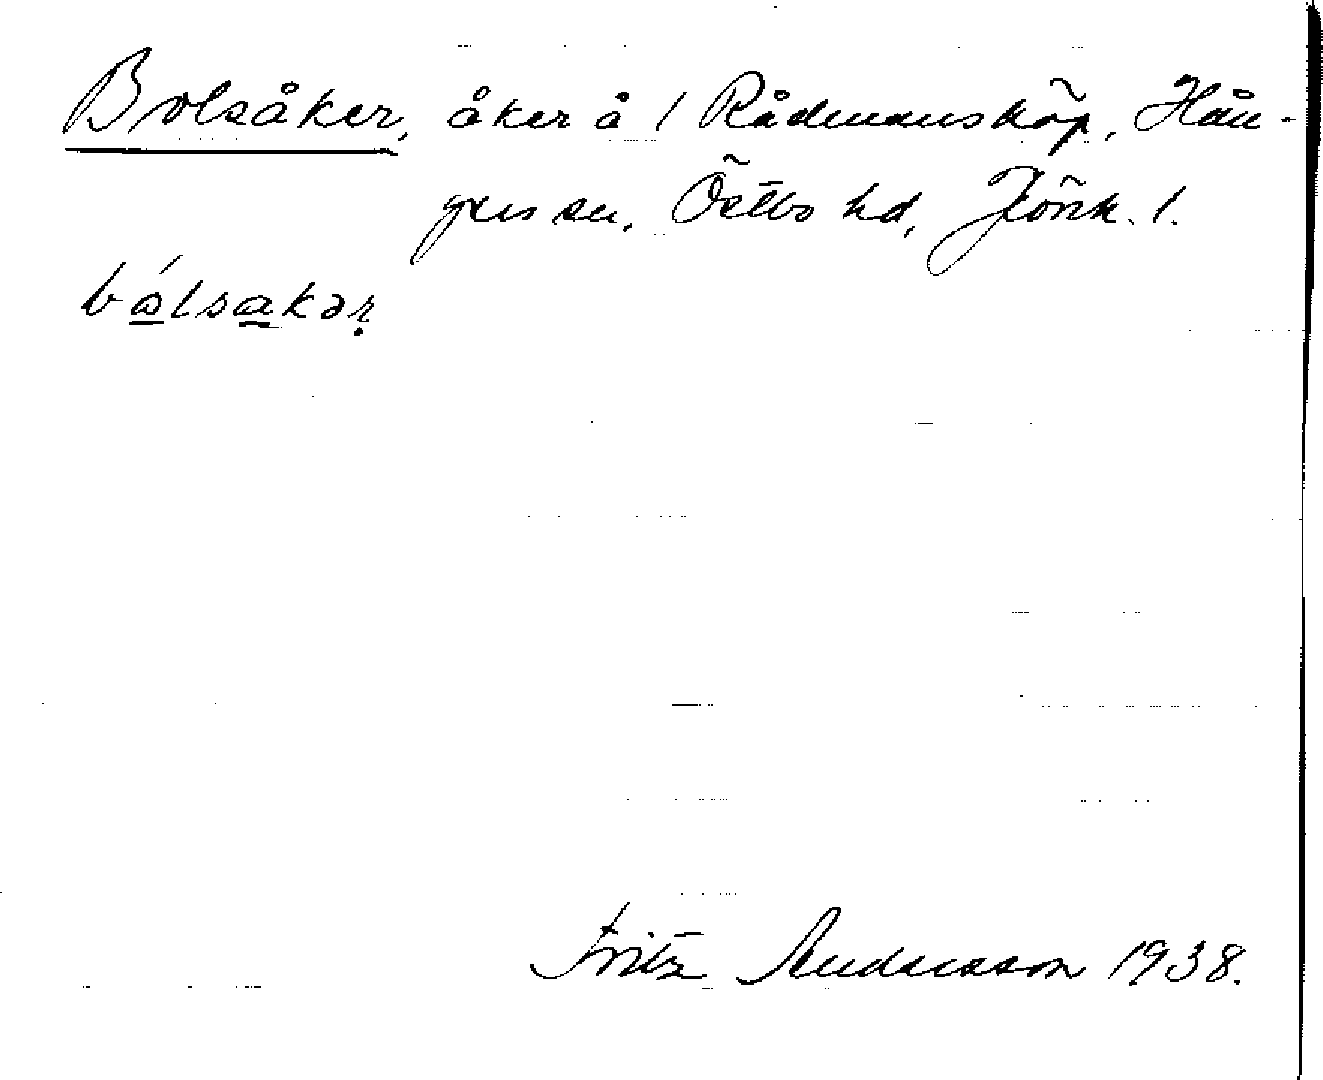 Bolsåker, åker å 1 Rådmansköp, Hån-
gers sn, Östbo hd, Jönk. l.
bålsakər
Fritz Andersson 1938.